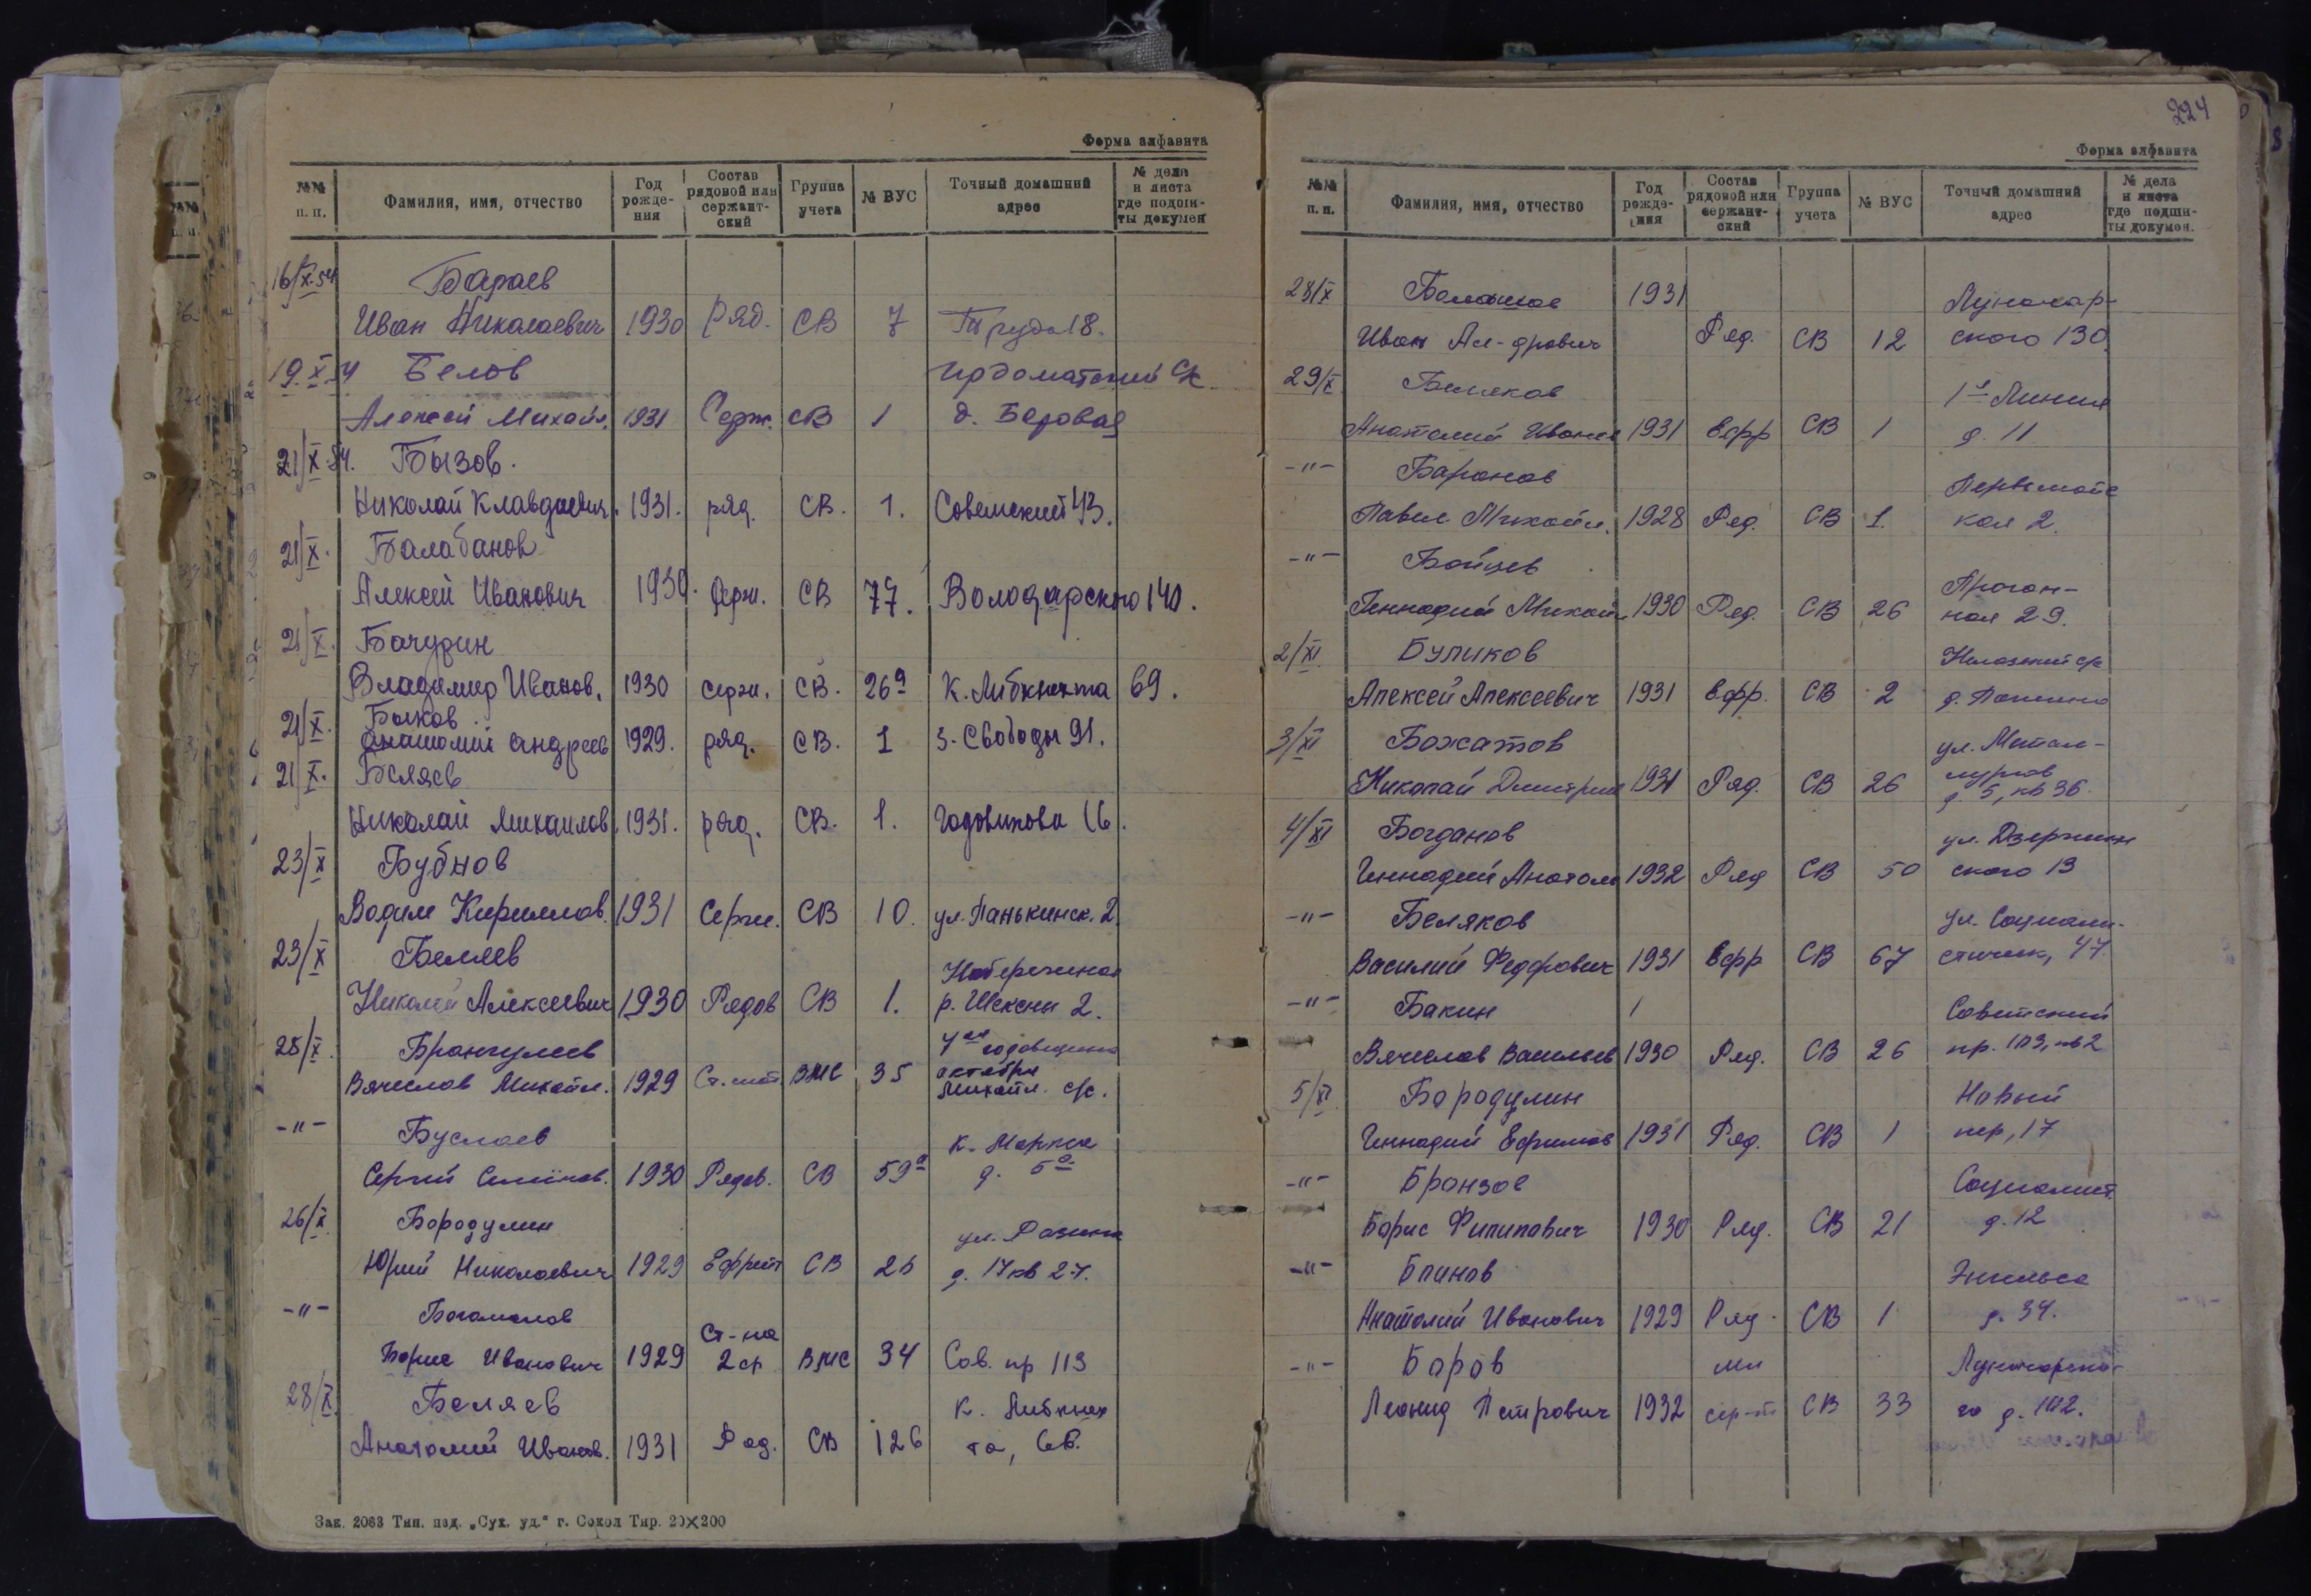 Форма алфавита
№№ п. п. Фамилия, имя, отчество Год рождения Состав рядовой или сержантский Группа учета № ВУС Точный домашний адрес № дела и листа где подши- ты докумен
16/X-54 Бараев
Иван Николаевич 1930 Ряд. СВ 7 Труда 18.
19.X.54 Белов Ирдоматский с/с
Алексей Михайл. 1931 Серж. СВ 1 д. Бедовая
21/X.54. Бызов.
Николай Клавдиевич. 1931. ряд. СВ. 1. Советский 43.
21/X. Балабанов
Алексей Иванович 1930. Серж. СВ 77. Володарского 140.
21/X. Бачурин
Владимир Иванов. 1930 серж. СВ. 26а К. Либкнехта 69.
21/X. Быков
Анатолий Андреев 1929. ряд. СВ. 1 3. Свободы 91.
21/X. Беляев
Николай Михайлов 1931. ряд. СВ. 1. Годовикова 16.
23/X Бубнов
Вадим Кириллов. 1931 Серж. СВ 10. ул. Панькинск. 2.
23/X Беляев Набережная
Николай Алексеевич 1930 Рядов СВ 1. р. Шексны 2.
25/X. Брангулеев годовщина
Вячеслав Михайл. 1929 Ст. мат. ВМС 35 октября
Михайл. с/с.
-"- Буслаев К. Маркса
Сергей Семёнов. 1930 Рядов. СВ 59а д. 5а
26/X Бородулин ул. Разина
Юрий Николаевич 1929 Ефрейт СВ 26 д. 17 кв 27.
-"- Богомолов Ст-на
Борис Иванович 1929 2 ст ВМС 34 Сов. пр 113
28/X. Беляев К. Либкнех
Анатолий Иванов. 1931 Ряд. СВ 126 та, 68.
Зак. 2063 Тип. изд. „Сух. уд.“ г. Сокол Тир. 20×200
224
Форма алфавита
№№ п. п. Фамилия, имя, отчество Год рождения Состав рядовой или сержантский Группа учета № ВУС Точный домашний адрес № дела и листа где подши- ты докумен.
28/X Балашов 1931 Луначар-
Иван Ал-дрович Ряд. СВ 12 ского 130.
29/X. Беляков 1я Линия
Анатолий Иванов 1931 Ефр СВ 1 д. 11
-"- Баранов Первомайс
Павел Михайл. 1928 Ряд. СВ 1. кая 2.
-"- Бойцев Прогон-
Геннадий Михайл 1930 Ряд. СВ 26 ная 29.
2/XI. Буликов Нелазский с/с
Алексей Алексеевич 1931 Ефр. СВ 2 д.
3/XI Божатов ул. Метал-
Николай Дмитрие 1931 Ряд. СВ 26 лургов
д. 5, кв 36.
4/XI Богданов ул. Дзержин
Геннадий Анатол 1932 Ряд СВ 50 ского 13
-"- Беляков ул. Социали-
Василий Федорович 1931 Ефр СВ 67 стическ, 47.
-"- Бакин Советский
Вячеслав Васильев 1930 Ряд. СВ 26 пр. 103, кв 2
5/XI. Бородулин Новый
Геннадий Ефимов 1931 Ряд. СВ 1 пер, 17
-"- Бронзов Социалист.
Борис Филипович 1930 Ряд. СВ 21 д. 12
-"- Блинов Энгельса
Анатолий Иванович 1929 Ряд. СВ 1 д. 34.
-"- Боров мл Луначарско-
Леонид Петрович 1932 сер-т СВ 33 го д. 102.